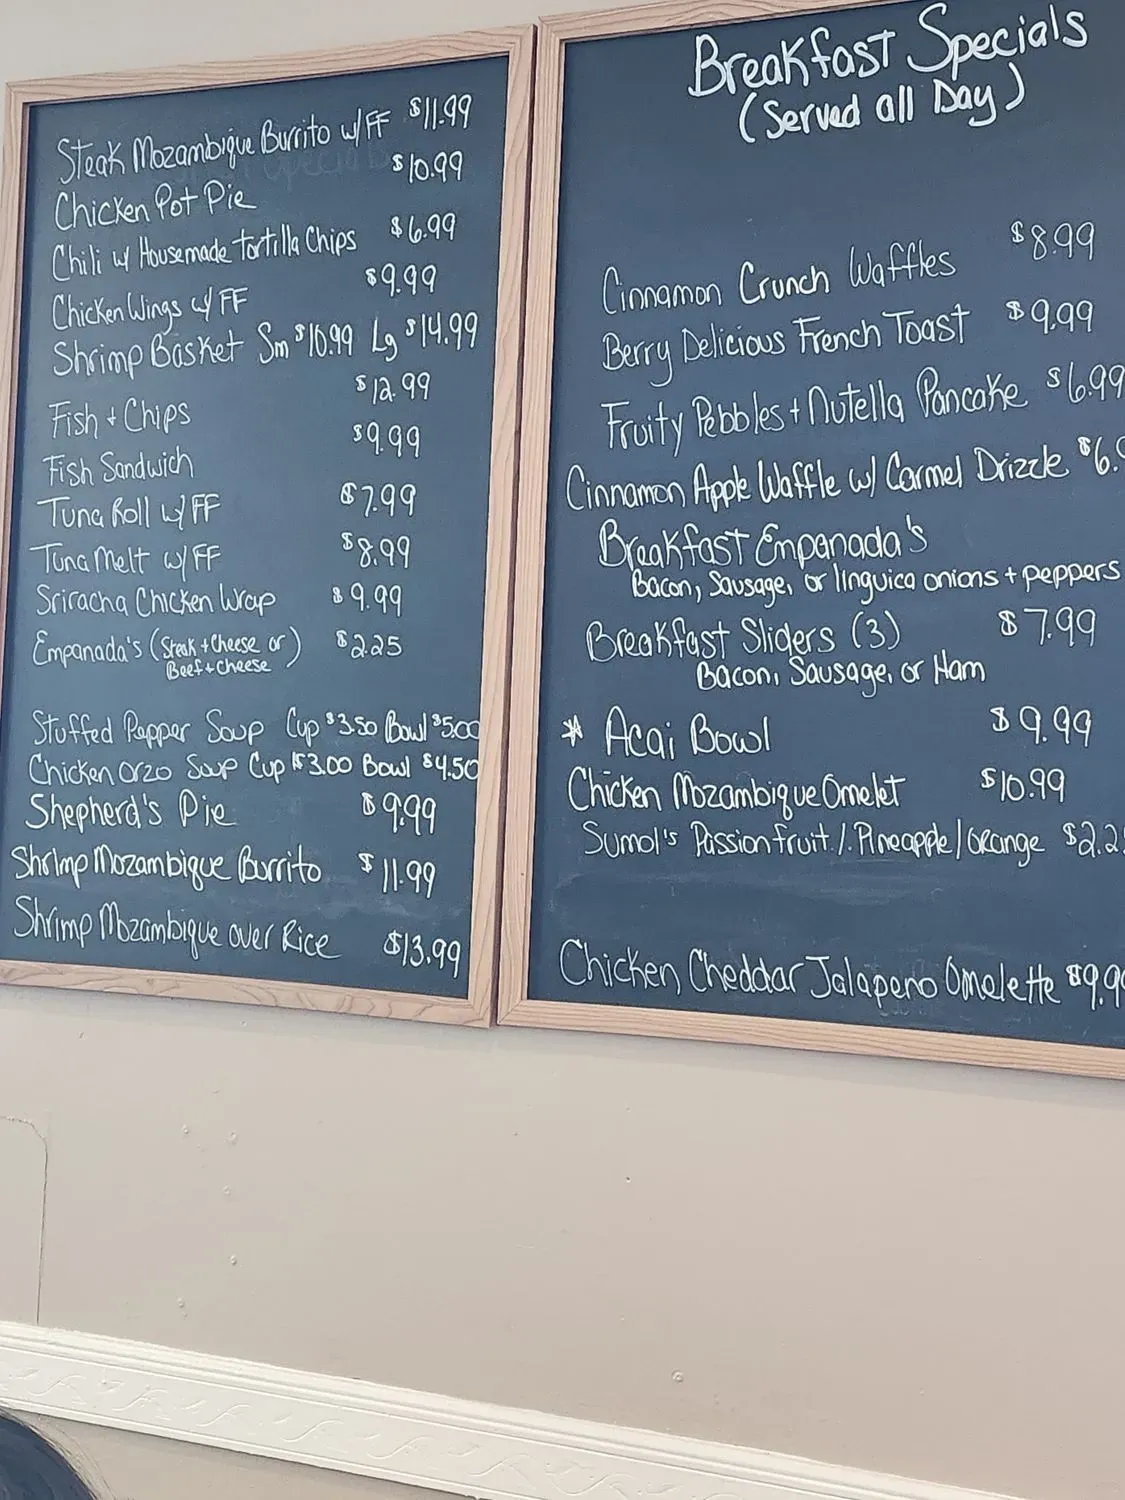 Steak Mozambique Burrito w/ FF $11.99
Chicken Pot Pie $10.99
Chili w/ Housemade tortilla Chips $6.99
Chicken Wings w/ FF $9.99
Shrimp Basket Sm $10.99 Lg $14.99
Fish + Chips $12.99
Fish Sandwich $9.99
Tuna Roll w/ FF $7.99
Tuna Melt w/ FF $8.99
Sriracha Chicken Wrap $9.99
Empanada's (Steak + Cheese or) $2.25
Beef + Cheese
Stuffed Pepper Soup Cup $3.50 Bowl $5.00
Chicken Orzo Soup Cup $3.00 Bowl $4.50
Shepherd's Pie $9.99
Shrimp Mozambique Burrito $11.99
Shrimp Mozambique over Rice $13.99
Breakfast Specials
(Served all Day)
Cinnamon Crunch Waffles $8.99
Berry Delicious French Toast $9.99
Fruity Pebbles + Nutella Pancake $6.99
Cinnamon Apple Waffle w/ Carmel Drizzle $6.
Breakfast Empanada's
Bacon, Sausage, or linguica onions + peppers
Breakfast Sliders (3) $7.99
Bacon, Sausage, or Ham
* Acai Bowl $9.99
Chicken Mozambique Omelet $10.99
Sumol's Passionfruit / Pineapple / orange $2.2
Chicken Cheddar Jalapeno Omelette $9.9